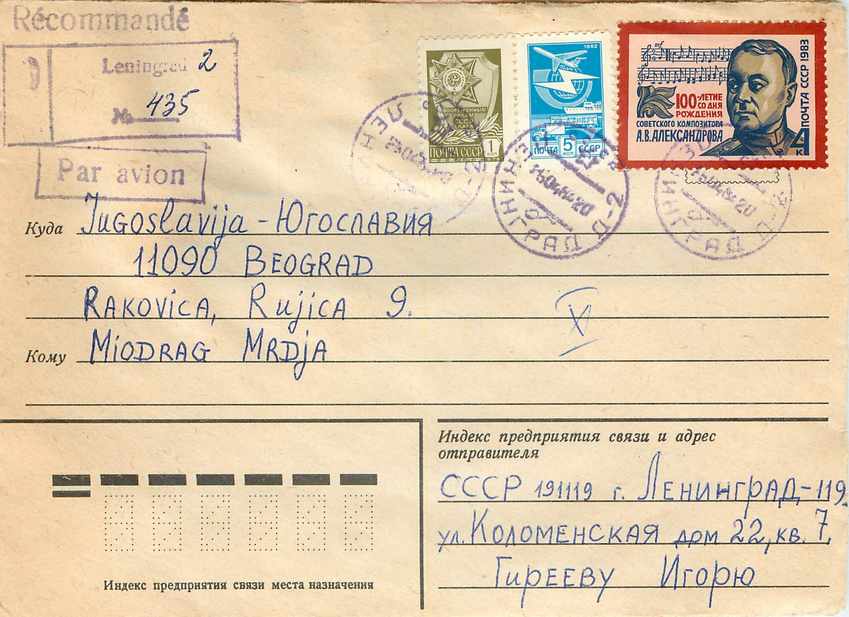 Récommandé
Leningrad 2
№ 435
Par avion
ПОЧТА СССР 1
1982
ПОЧТА 5 СССР
100-ЛЕТИЕ
СО ДНЯ
РОЖДЕНИЯ
СОВЕТСКОГО КОМПОЗИТОРА
А.В.АЛЕКСАНДРОВА
ПОЧТА СССР 1983
4 к
ЛЕНИНГРАД Д-2
Куда Jugoslavija - Югославия
11090 BEOGRAD
RAKOVICA, Rujica 9.
Кому MIODRAG MRDJA
XI
Индекс предприятия связи и адрес
отправителя
СССР 191119 г. ЛЕНИНГРАД-119.
ул. КОЛОМЕНСКАЯ дом 22, кв. 7,
Гирееву Игорю
Индекс предприятия связи места назначения